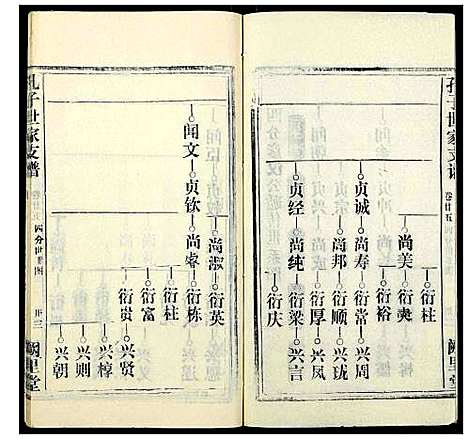 孔子世家支谱
卷廿五
阙里堂
贞诚
贞经
尚美
尚寿
尚邦
尚纯
衍柱
衍奭
衍裕
衍常
衍顺
衍厚
衍梁
衍庆
兴周
兴珑
兴凤
兴言
闻文
贞钦
尚淑
尚睿
衍英
衍栋
衍柱
衍富
衍贵
兴贤
兴椁
兴则
兴朝
孔子世家支谱
四分世系图
卅三
阙里堂